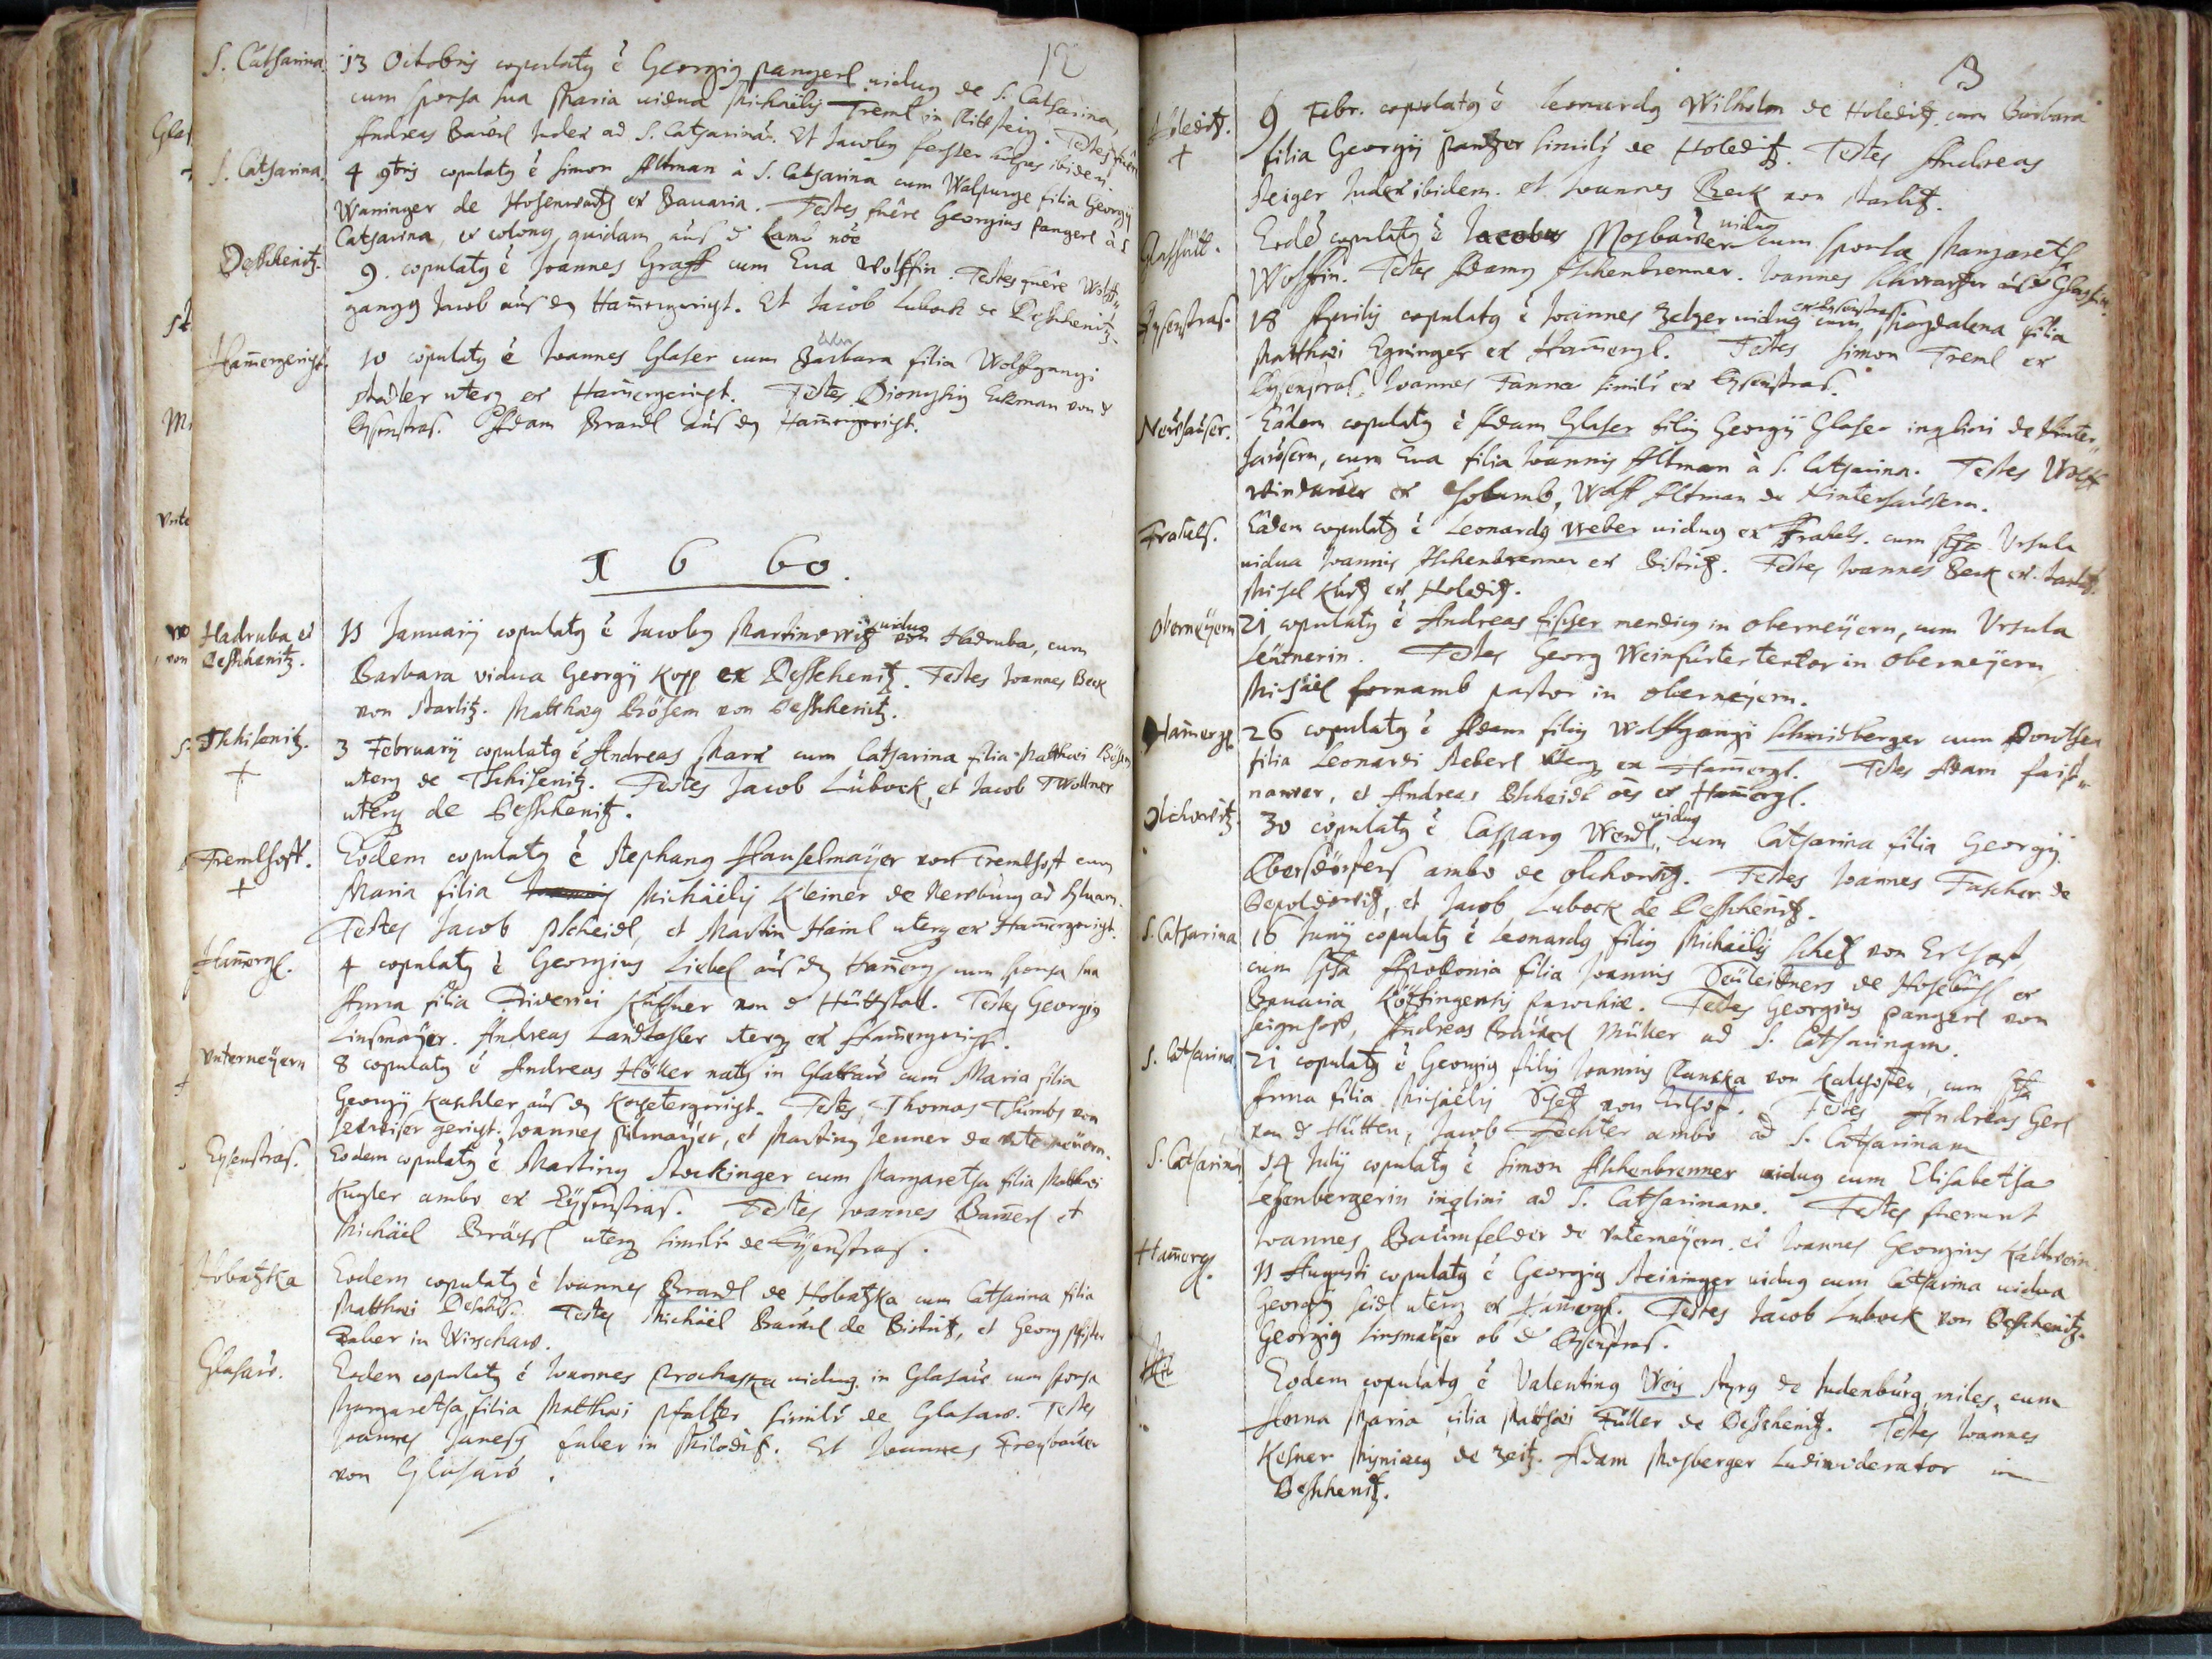 12
S. Catharina. 13 Octobris copulatq ē Georgiq pangerl viduq de S. Catharina,
cum sponsa sua Maria vidua Michaëlis Treml in Rittsteig. Testes fuêre
Andreas Bauerl Judex ad S. Catharinā. Et Jacobq ferster ibidem.
S. Catharina. 4 9bris copulatq ē Simon Altman à S. Catharina cum Walpurge filia Georgij
Waninger de Hosenwartz ex Bavaria. Testes fuêre Georgius Pangerl à S
Catharina, et colonq quidam aus d
Deschenitz. 9. copulatq ē Joannes Graff cum Eva Wolffin. Testes fuêre Wolff„
gangq Jacob aus dq Ham̄ergericht. Et Jacob Lubock de Deschenitz.
Ham̄ergericht. 10 copulatq ē Joannes Glaser cum Barbara filia Wolffgangi
Stadler uterq ex Ham̄ergericht. Testes Dionysiq Eckman von d
Eysenstras. Adam Brandl aus dq Ham̄ergericht.
1660.
Hadruba et Deschenitz. 11 Januarij copulatq ē Jacobq Martinowitz viduq von Hadruba, cum
Barbara vidua Georgij Kopp ex Deschenitz. Testes Joannes Beck
von Starlitz. Matthæq Brösem von Deschenitz.
Tschisenitz. 3 Februarij copulatq ē Andreas Marx cum Catharina filia Matthæi
uterq de Tschisenitz. Testes Jacob Lubock, et Jacob Wollner
uterq de Deschenitz.
Fremlhoff. Eodem copulatq ē Stephanq Hauselmaÿer von Fremlhoff cum
Maria filia Michäëlis Kleiner de Newburg ad
Testes Jacob Pscheidl, et Martin Haiml uterq ex Ham̄ergericht.
Ham̄ergl. 4 copulatq ē Georgius Liebel aus dq Ham̄erg, cum sponsa sua
Anna filia Friderici Küffner von d Hüttstatt. Testes Georgiq
Linsmaÿer. Andreas Landtasler uterq ex Ham̄ergericht.
Unterneÿern 8 copulatq ē Andreas Höller natq in Glattaw cum Maria filia
Georgij Kaschler aus dq Kochetergericht. Testes, Thomas Thumbs von
Sewiser gericht. Joannes Pilmaÿer, et Martinq Jenner de Unterneüern.
Eysenstras. Eodem copulatq ē Martinq Stockinger cum Margaretha filia Matthæi
Kugler ambo ex Eÿsenstras. Testes Joannes Bam̄erl et
Michäel Bräxl uterq similr de Eÿsenstras.
Hobatzka Eodem copulatq ē Joannes Brandl de Hobatzka cum Catharina filia
Matthæi Testes Michäël Bäuml de Bistritz, et Georg Pfister
Faber in Wirschaw.
Glasaw. Eodem copulatq ē Joannes Prochaska viduq in Glasaw cum sponsa
Margaretha filia Matthæi Pfaltzer similr de Glasaw. Testes
Joannes Janesch faber in Milodis. Et Joannes Freybauer
von Glasaw.
13
Holeditz. 9 Febr. copulatq ē Leonardq Wilhelm de Holeditz cum Barbara
filia Georgij Pantzer similr de Holeditz. Testes Andreas
Steiger Judex ibidem. et Joannes Beck von Starlitz.
Glashütt. Eodē copulatq ē Jacobus Mosbawer viduq cum sponsa Margareth
Wolffin. Testes Adamq Aschenbrenner. Joannes Schwartzer aus d Glashütt.
Eysenstras. 18 Aprilis copulatq ē Joannes Zelzer viduq ex Eysenstras cum Magdalena filia
Matthæi Egninger ex Ham̄ergl. Testes Simon Treml ex
Eysenstras, Joannes Tanna similr ex Eysenstras.
Newhäuser. Eâdem copulatq ē Adam Glaser filiq Georgij Glaser inqlini de Hinter„
hausern, cum Eva filia Joannis Altman à S. Catharina. Testes Wolff
Windawer ex Wolff Altman de Hinterhausern.
Frahels. Eâdem copulatq ē Leonardq Weber viduq ex Frahels. cum spsa Ursula
vidua Joannis Aschenbrenner ex Bistritz. Testes Joannes Beck ex Starlitz.
Michel Kurtz ex Holeditz.
Oberneÿern 21 copulatq ē Andreas Fischer mendicq in Oberneÿern, cum Ursula
Leutnerin. Testes Georg Weinfurter textor in Oberneÿern
Michäel fornamb pastor in Oberneÿern.
Ham̄ergl. 26 copulatq ē Adam filiq Wolffgangi Schmidberger cum Dorothea
filia Leonardi Steberl uterq ex Ham̄ergl. Testes Adam Faist„
nawer, et Andreas Pscheidl o͞es ex Ham̄ergl.
Olchowitz 30 copulatq ē Casparq Wendl viduq cum Catharina filia Georgij
Ebersdörfers ambo de Olchowitz. Testes Joannes Tascher de
Depoldowitz, et Jacob Lubock de Deschenitz.
S. Catharina 16 Junij copulatq ē Leonardq filiq Michäëlis Schetz von Erlhoff,
cum spsa Apollonia filia Joannis Deüleittners de Hosebüchl ex
Bavaria Kötztingensis parochiæ. Testes Georgius Pangerl von
Seignhoff, Andreas Bräuerl Müller ad S. Catharinam.
S. Catharina 21 copulatq ē Georgiq filiq Joannis Ranska von Kalchoffen, cum spsa
Anna filia Michäelis Schetz von Erlhof. Testes Andreas Gerl
von d Hütten, Jacob Fechter ambo ad S. Catharinam
S. Catharina 14 Julij copulatq ē Simon Aschenbrenner viduq cum Elisabetha
Lehenbergerin inqlini ad S. Catharinam. Testes fuerunt
Joannes Baumfelder de Unterneÿern. et Joannes Georgius Kaltwein.
Ham̄ergl. 11 Augusti copulatq ē Georgiq Steininger viduq cum Catharina vidua
Georgij Seidl uterq ex Ham̄ergl. Testes Jacob Lubock von Deschenitz.
Georgiq Linsmaÿer ob d Eysenstras.
Eodem copulatq ē Valentinq Weis Styrq de Judenburg miles, cum
Anna Maria filia Matthæi Füller de Deschenitz. Testes Joannes
Kesner de Zeitz. Adam Mosberger Ludimoderator in
Deschenitz.